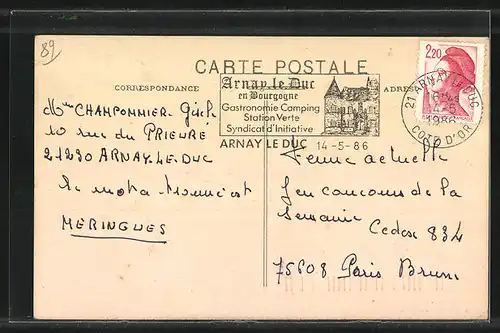 89
CARTE POSTALE
CORRESPONDANCE
ADRES
Arnay le Duc
en Bourgogne
Gastronomie Camping
Station Verte
Syndicat d'Initiative
ARNAY LE DUC 14-5-86
2,20
21 ARNAY LE DUC
1986
COTE D'OR
Mme CHAMPONNIER
10 rue du PRIEURE
21230 ARNAY-LE-DUC
Le mot à trouver est
MERINGUES
Femme actuelle
Jeu concours de la
Semaine
Cedex 834
75608 Paris Brune